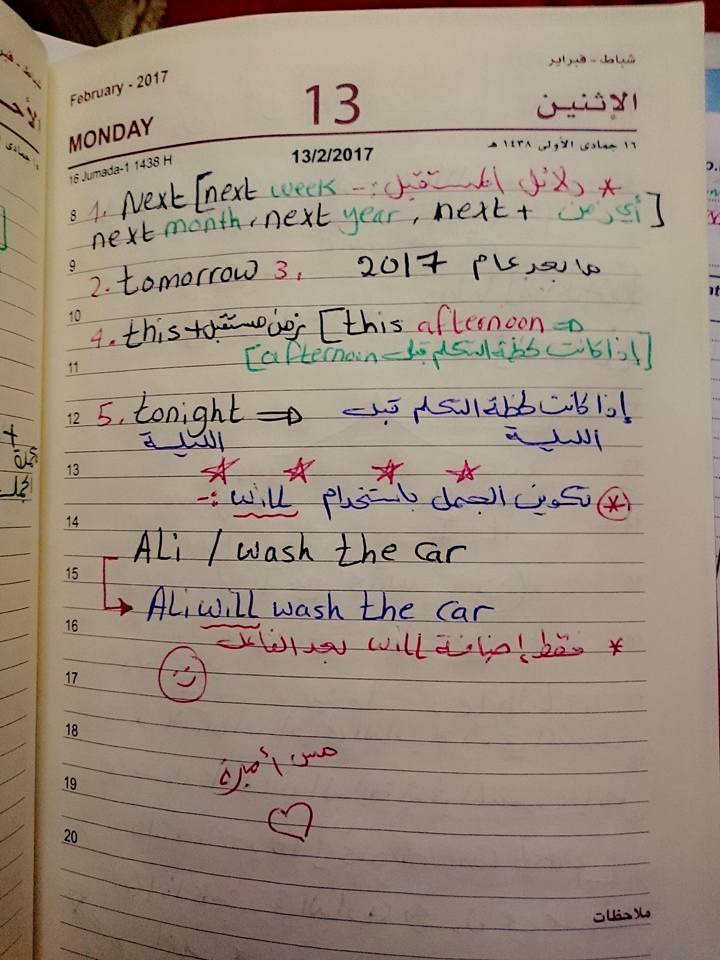 شباط - فبراير
February - 2017
13
الإثنين
MONDAY
16 Jumada-1 1438 H
13/2/2017
١٦ جمادى الأولى ١٤٣٨ هـ
* دلائل المستقبل :-
8 1. Next [next week
next month, next year, next + أي زمن]
9
2. tomorrow 3. ما بعد عام 2017
10
4. this + زمن مستقبل [this afternoon ⇒
11 [إذا كانت لحظة التكلم قبل afternoon]
12 5. tonight ⇒ إذا كانت لحظة التكلم قبل
الليلة الليلة
13
* تكوين الجمل باستخدام will :-
14
Ali / wash the car
15
Ali will wash the car
16
* فقط إضافة will بعد الفاعل
17
18
مس أميرة
19
20
ملاحظات